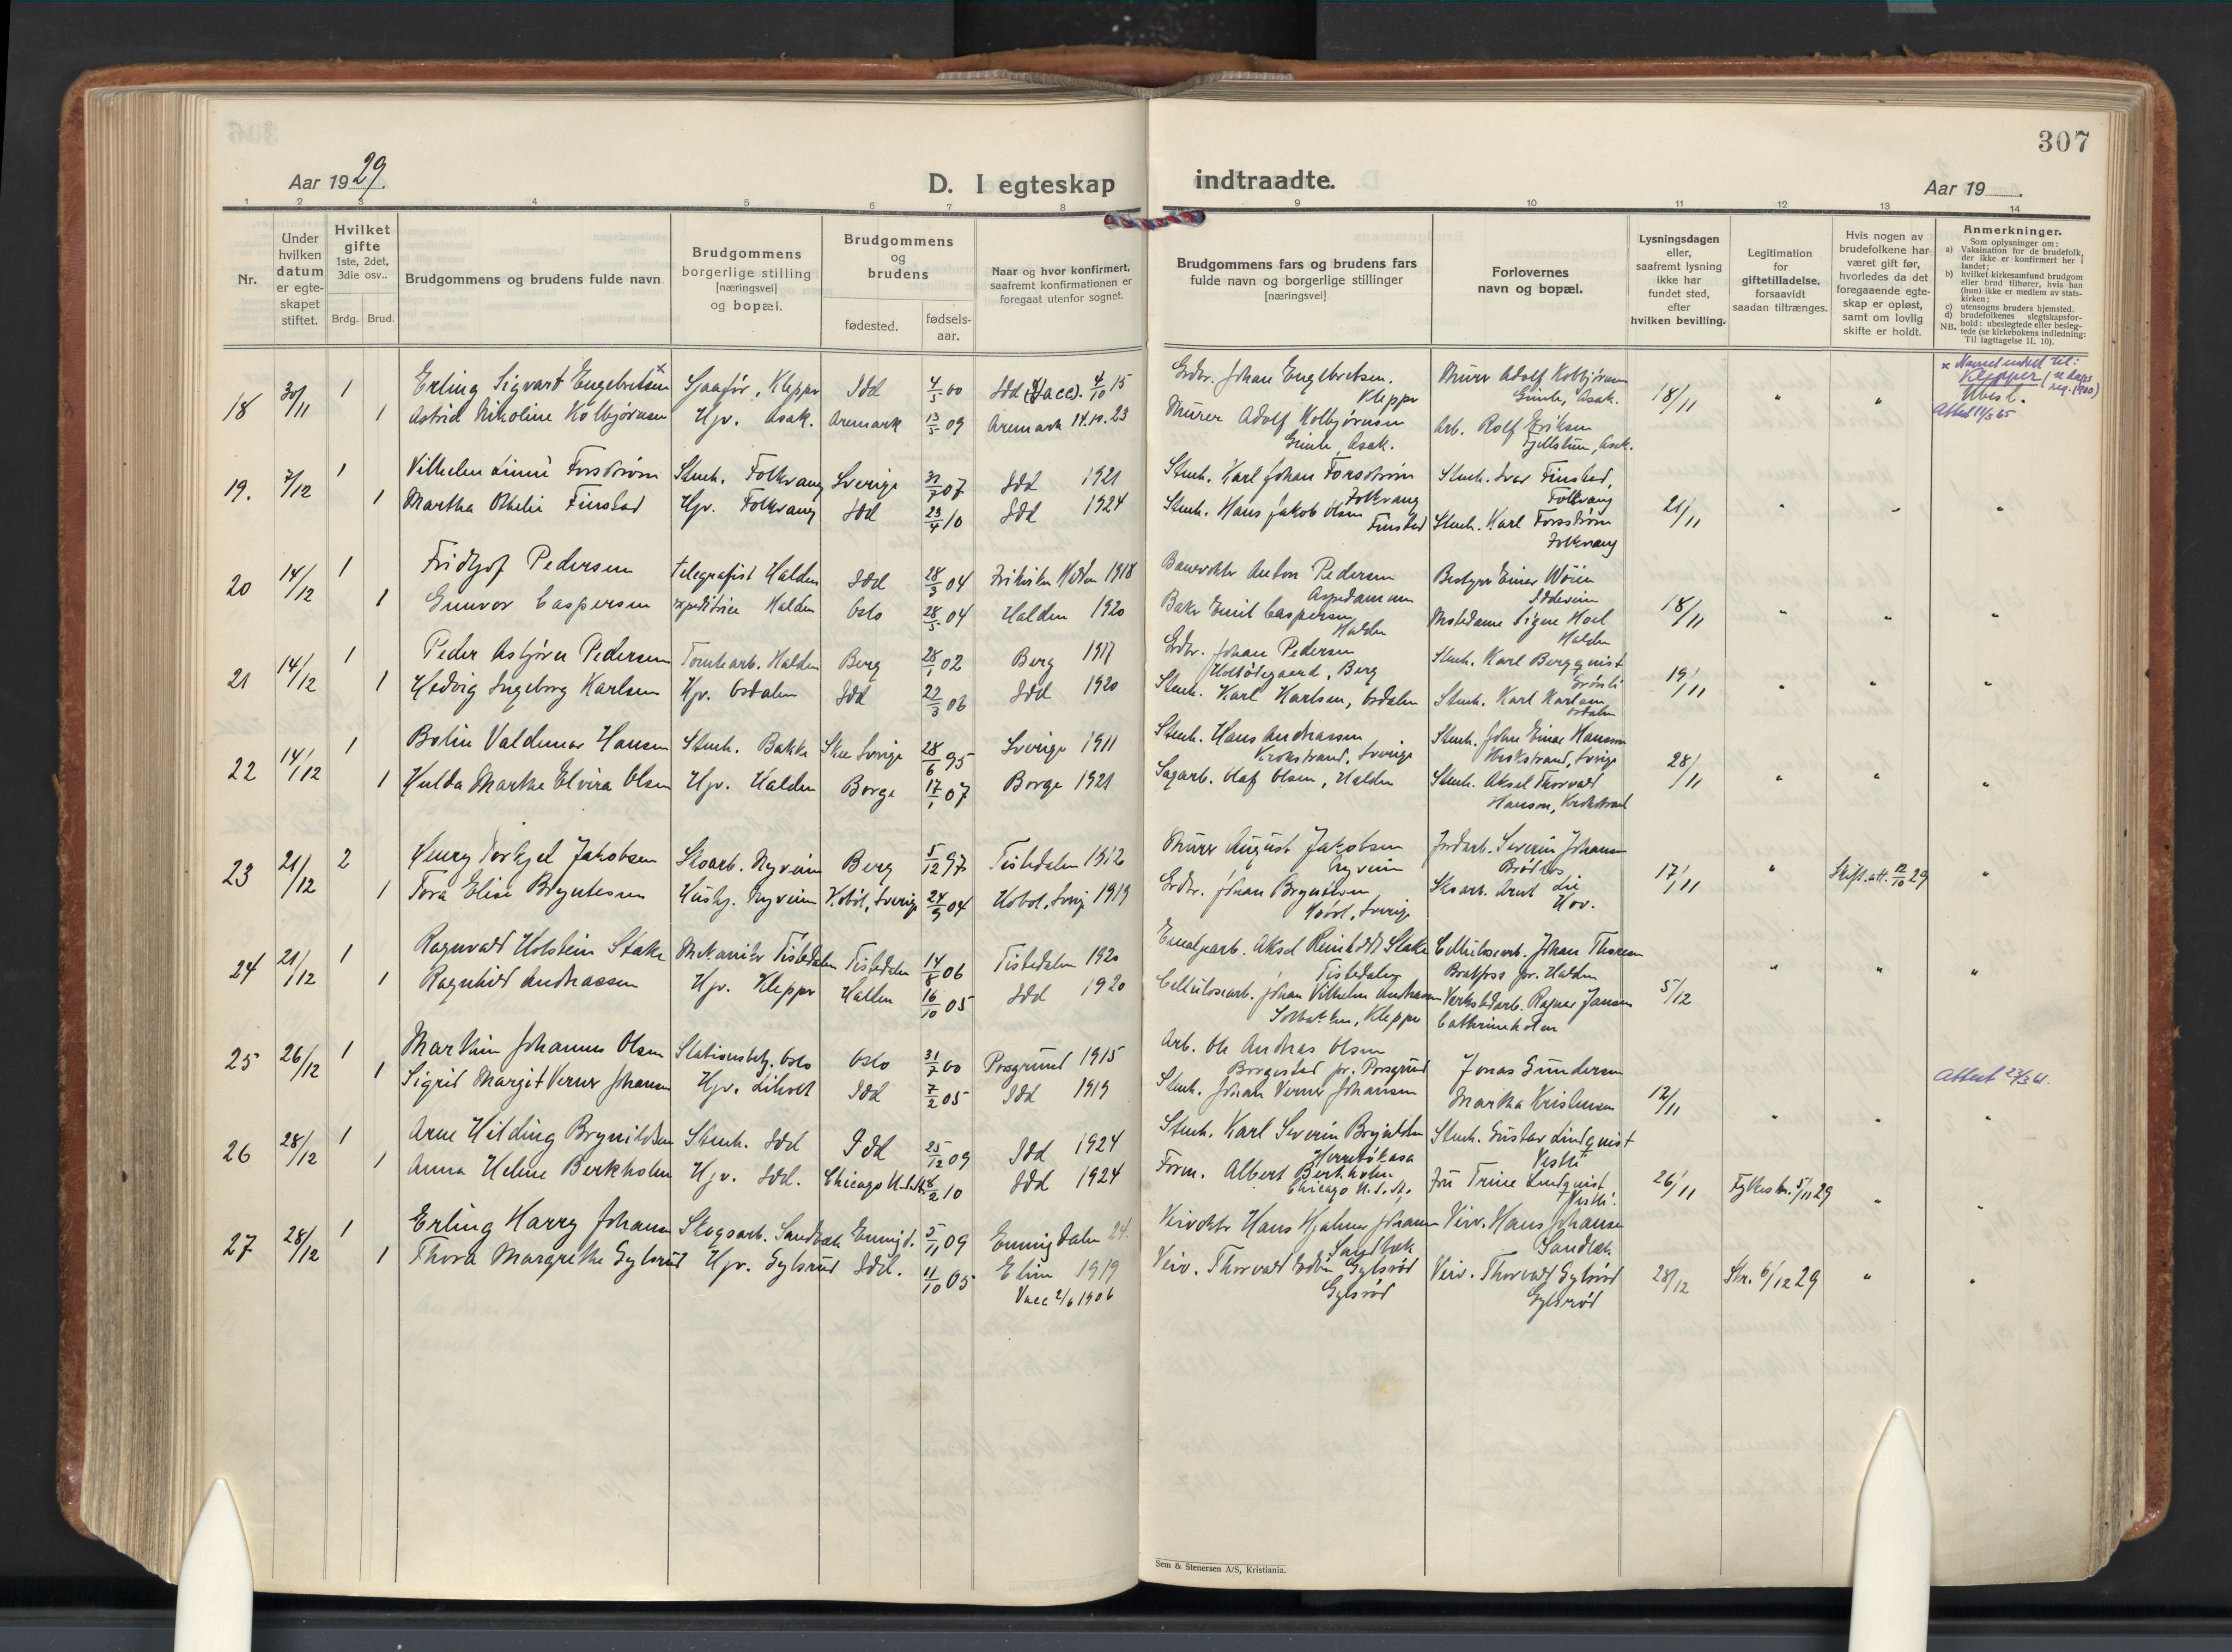 307
Aar 1929.
D. I egteskap indtraadte.
Aar 19
1 2 3 4 5 6 7 8 9 10 11 12 13 14
Nr.
Under hvilken datum er egte- skapet stiftet.
Hvilket gifte 1ste, 2det, 3die osv..
Brdg. Brud.
Brudgommens og brudens fulde navn
Brudgommens borgerlige stilling [næringsvei] og bopæl.
Brudgommens og brudens
fødested.
fødsels- aar.
Naar og hvor konfirmert, saafremt konfirmationen er foregaat utenfor sognet.
Brudgommens fars og brudens fars fulde navn og borgerlige stillinger [næringsvei]
Forlovernes navn og bopæl.
Lysningsdagen eller, saafremt lysning ikke har fundet sted, efter hvilken bevilling.
Legitimation for giftetilladelse, forsaavidt saadan tiltrænges.
Hvis nogen av brudefolkene har været gift før, hvorledes da det foregaaende egte- skap er opløst, samt om lovlig skifte er holdt.
Anmerkninger.
Som oplysninger om:
a) Vaksination for de brudefolk, der ikke er konfirmert her i landet;
b) hvilket kirkesamfund brudgom eller brud tilhører, hvis han (hun) ikke er medlem av stats- kirken;
c) utensogns bruders hjemsted.
d) brudefolkenes slegtskapsfor- hold: ubeslegtede eller besleg- tede (se kirkebokens indledning: Til iagttagelse II, 10).
NB.
18 30/11 1 Erling Sigvart Engebretsen x Sjaafør, Klepper Idd 4/5 00 Idd (Vacc). 4/10 15 Grdbr. Johan Engebretsen. Klepper Murer Adolf Kolbjørnsen Gimle, Asak. 18/11 " "
x Navnet endret til: Klepper
Ubesl.
1 Astrid Nikoline Kolbjørnsen Hjv. Asak. Aremark 13/5 09 Aremark 14.10.23 Murer Adolf Kolbjørnsen Gimle, Asak. Arb. Rolf Eriksen Fjellstun, Asak.
19. 7/12 1 Vilhelm Linné Forsstrøm Stenh. Folkvang Sverige 07 Idd 1921 Stenh. Karl Johan Forsstrøm Folkvang Stenh. Ivar Finstad, Folkvang
1 Martha Othelie Finstad Hjv. Folkvang Idd 23/4 10 Idd 1924 Stenh. Hans Jakob Olsen Finstad Stenh. Karl Forsstrøm Folkvang 21/11 " " "
20 14/12 1 Fridtjof Pedersen Telegrafist Halden Idd 28/3 04 Halden 1918 Banevokter Anton Pedersen Aspedammen Bestyrer Einar Wiien
1 Gunvor Caspersen Expeditrice Halden Oslo 28/5 04 Halden 1920 Baker Emil Caspersen Halden Motedame Signe Hoel Halden 18/11 " " "
21 14/12 1 Peder Asbjørn Pedersen Tomtearb. Halden Berg 28/1 02 Berg 1917 Grdbr. Johan Pedersen Berg Stenh. Karl Bergquist Grønli
1 Hedvig Ingeborg Karlsen Hjv. Osdalen Idd 22/3 06 Idd 1920 Stenh. Karl Karlsen, Osdalen Stenh. Karl Karlsen Osdalen 19/11 " " "
22 14/12 1 Bolin Valdemar Hansen Stenh. Bakke Skee Sverige 28/6 95 Sverige 1911 Stenh. Hans Andreassen Krokstrand, Sverige Stenh. John Einar Hansson Krokstrand, Sverige
1 Hulda Marthe Elvira Olsen Hjv. Halden Borge 17/1 07 Borge 1921 Sagarb. Olaf Olsen, Halden Stenh. Aksel Thorvald Hanson, Krokstrand 28/11 " " "
23 21/12 2 Henry Torkjel Jakobsen Skoarb. Nyveien Berg 5/12 97 Tistedalen 1912 Murer August Jakobsen Nyveien Jordarb. Severin Johansen
1 Tora Elise Bryntesen Hush. Nyveien Høbøl, Sverige 24/9 04 Høbøl, Sverig 1919 Grdbr. Johan Bryntesen Sverige Skoarb. Arnt Lie Hov. 17/11 " Skift. att. 12/10 29 "
24 21/12 1 Ragnvald Holstein Stake Mekaniker Tistedalen Tistedalen 14/8 06 Tistedalen 1920 Emaljearb. Aksel Reinholdt Stake Tistedalen Cellulosearb. Johan Thoresen Bratfoss pr. Halden
1 Ragnhild Andreassen Hjv. Klepper Halden 16/10 05 Idd 1920 Cellulosearb. Johan Vilhelm Andreassen Solbakken, Klepper Verkstedarb. Ragnar Jansen Cathrineholm 5/12 " " "
25 26/12 1 Marthin Johannes Olsen Stationsbetj. Oslo Oslo 31/7 00 Porsgrund 1915 Arb. Ole Andreas Olsen Borgestad pr. Porsgrund Jonas Gundersen
1 Sigrid Margit Verner Johansen Hjv. Liholt Idd 7/2 05 Idd 1919 Stenh. Johan Verner Johansen Martha Kristensen 12/11 " " "
Attest 27/3 61.
26 28/12 1 Arne Hilding Brynildsen Stenh. Idd Idd 25/12 09 Idd 1924 Stenh. Karl Severin Brynildsen Stenh. Gustav Lindquist
1 Anna Helene Berkholm Hjv. Idd. Chicago U.S.A. 8/2 10 Idd 1924 Form. Albert Berkholm Chicago U.S.A. Fru Trine Lindquist 26/11 Fylkesm. 5/11 29 " "
27 28/12 1 Erling Harry Johansen Skogsarb. Sandbæk Enningd. 5/11 09 Enningdalen 24. Veivokter Hans Hjalmar Johansen Sandbæk Veiv. Hans Johansen Sandbæk
1 Thora Margrethe Gylsrud Hjv. Gylsrud Idd. 11/10 05 Elim 1919 Vacc 2/6 1906 Veiv. Thorvald Edvin Gylsrød Gylsrød Veiv. Thorvald Gylsrød Gylsrød 28/12 Skr. 6/12 29 " "
Sem & Stenersen A/S, Kristiania.